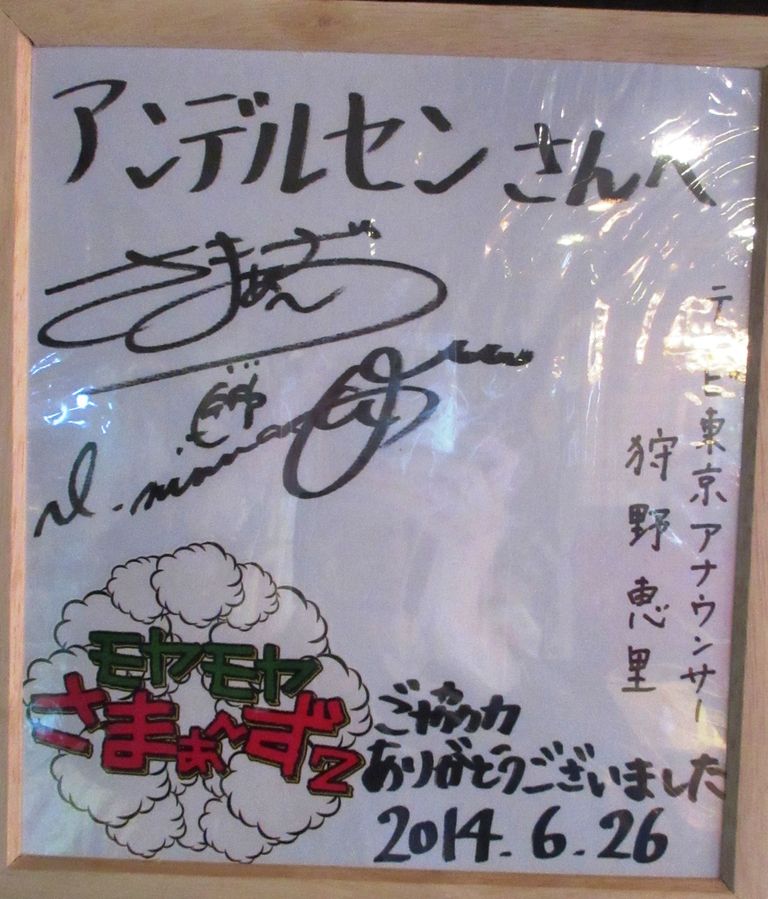 アンデルセンさんへ
さまぁ〜ず
テレビ東京アナウンサー
狩野恵里
モヤモヤ
さまぁ〜ず2
ご協力
ありがとうございました
2014.6.26